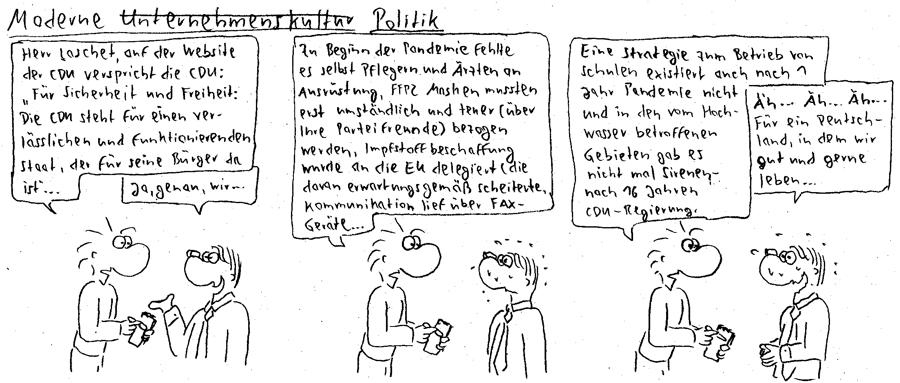 Moderne Unternehmenskultur Politik
Herr Laschet, auf der Website
der CDU verspricht die CDU:
„Für Sicherheit und Freiheit:
Die CDU steht für einen ver-
lässlichen und funktionierenden
Staat, der für seine Bürger da
ist...
Ja, genau, wir...
Zu Beginn der Pandemie fehlte
es selbst Pflegern und Ärzten an
Ausrüstung, FFP2 Masken mussten
erst umständlich und teuer (über
Ihre Parteifreunde) bezogen
werden, Impfstoffbeschaffung
wurde an die EU delegiert (die
daran erwartungsgemäß scheiterte,
Kommunikation lief über FAX-
Geräte...
Eine Strategie zum Betrieb von
Schulen existiert auch nach 1
Jahr Pandemie nicht
und in den vom Hoch-
wasser betroffenen
Gebieten gab es
nicht mal Sirenen-
nach 16 Jahren
CDU-Regierung.
Äh... Äh... Äh...
Für ein Deutsch-
land, in dem wir
gut und gerne
leben...